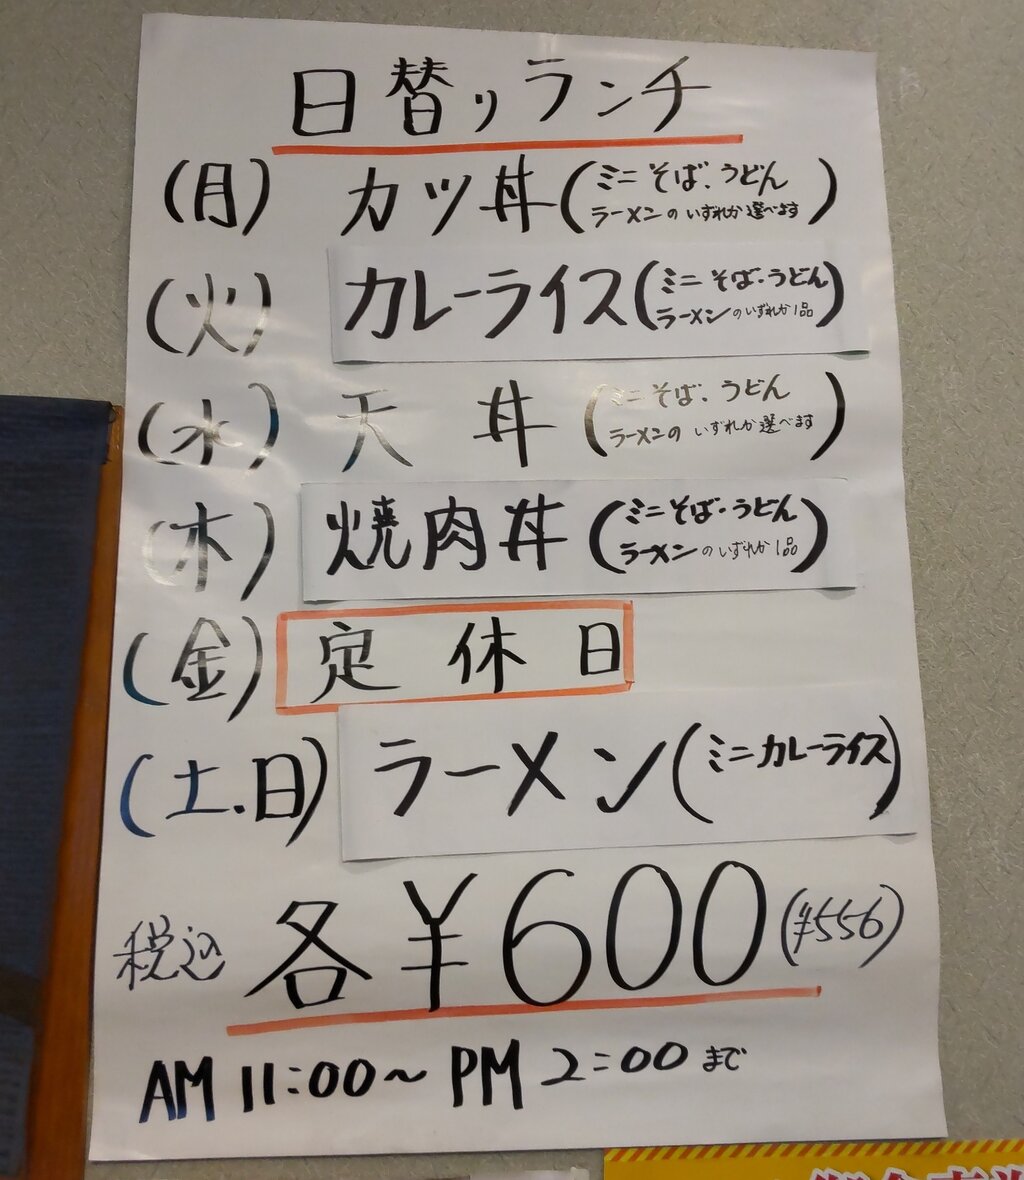 日替りランチ
(月) カツ丼(ミニそば、うどん
ラーメンのいずれか選べます)
(火) カレーライス(ミニそば・うどん
ラーメンのいずれか1品)
(水) 天丼(ミニそば、うどん
ラーメンのいずれか選べます)
(木) 焼肉丼(ミニそば・うどん
ラーメンのいずれか1品)
(金) 定休日
(土.日) ラーメン(ミニカレーライス)
税込 各¥600(¥556)
AM 11:00～PM 2:00まで